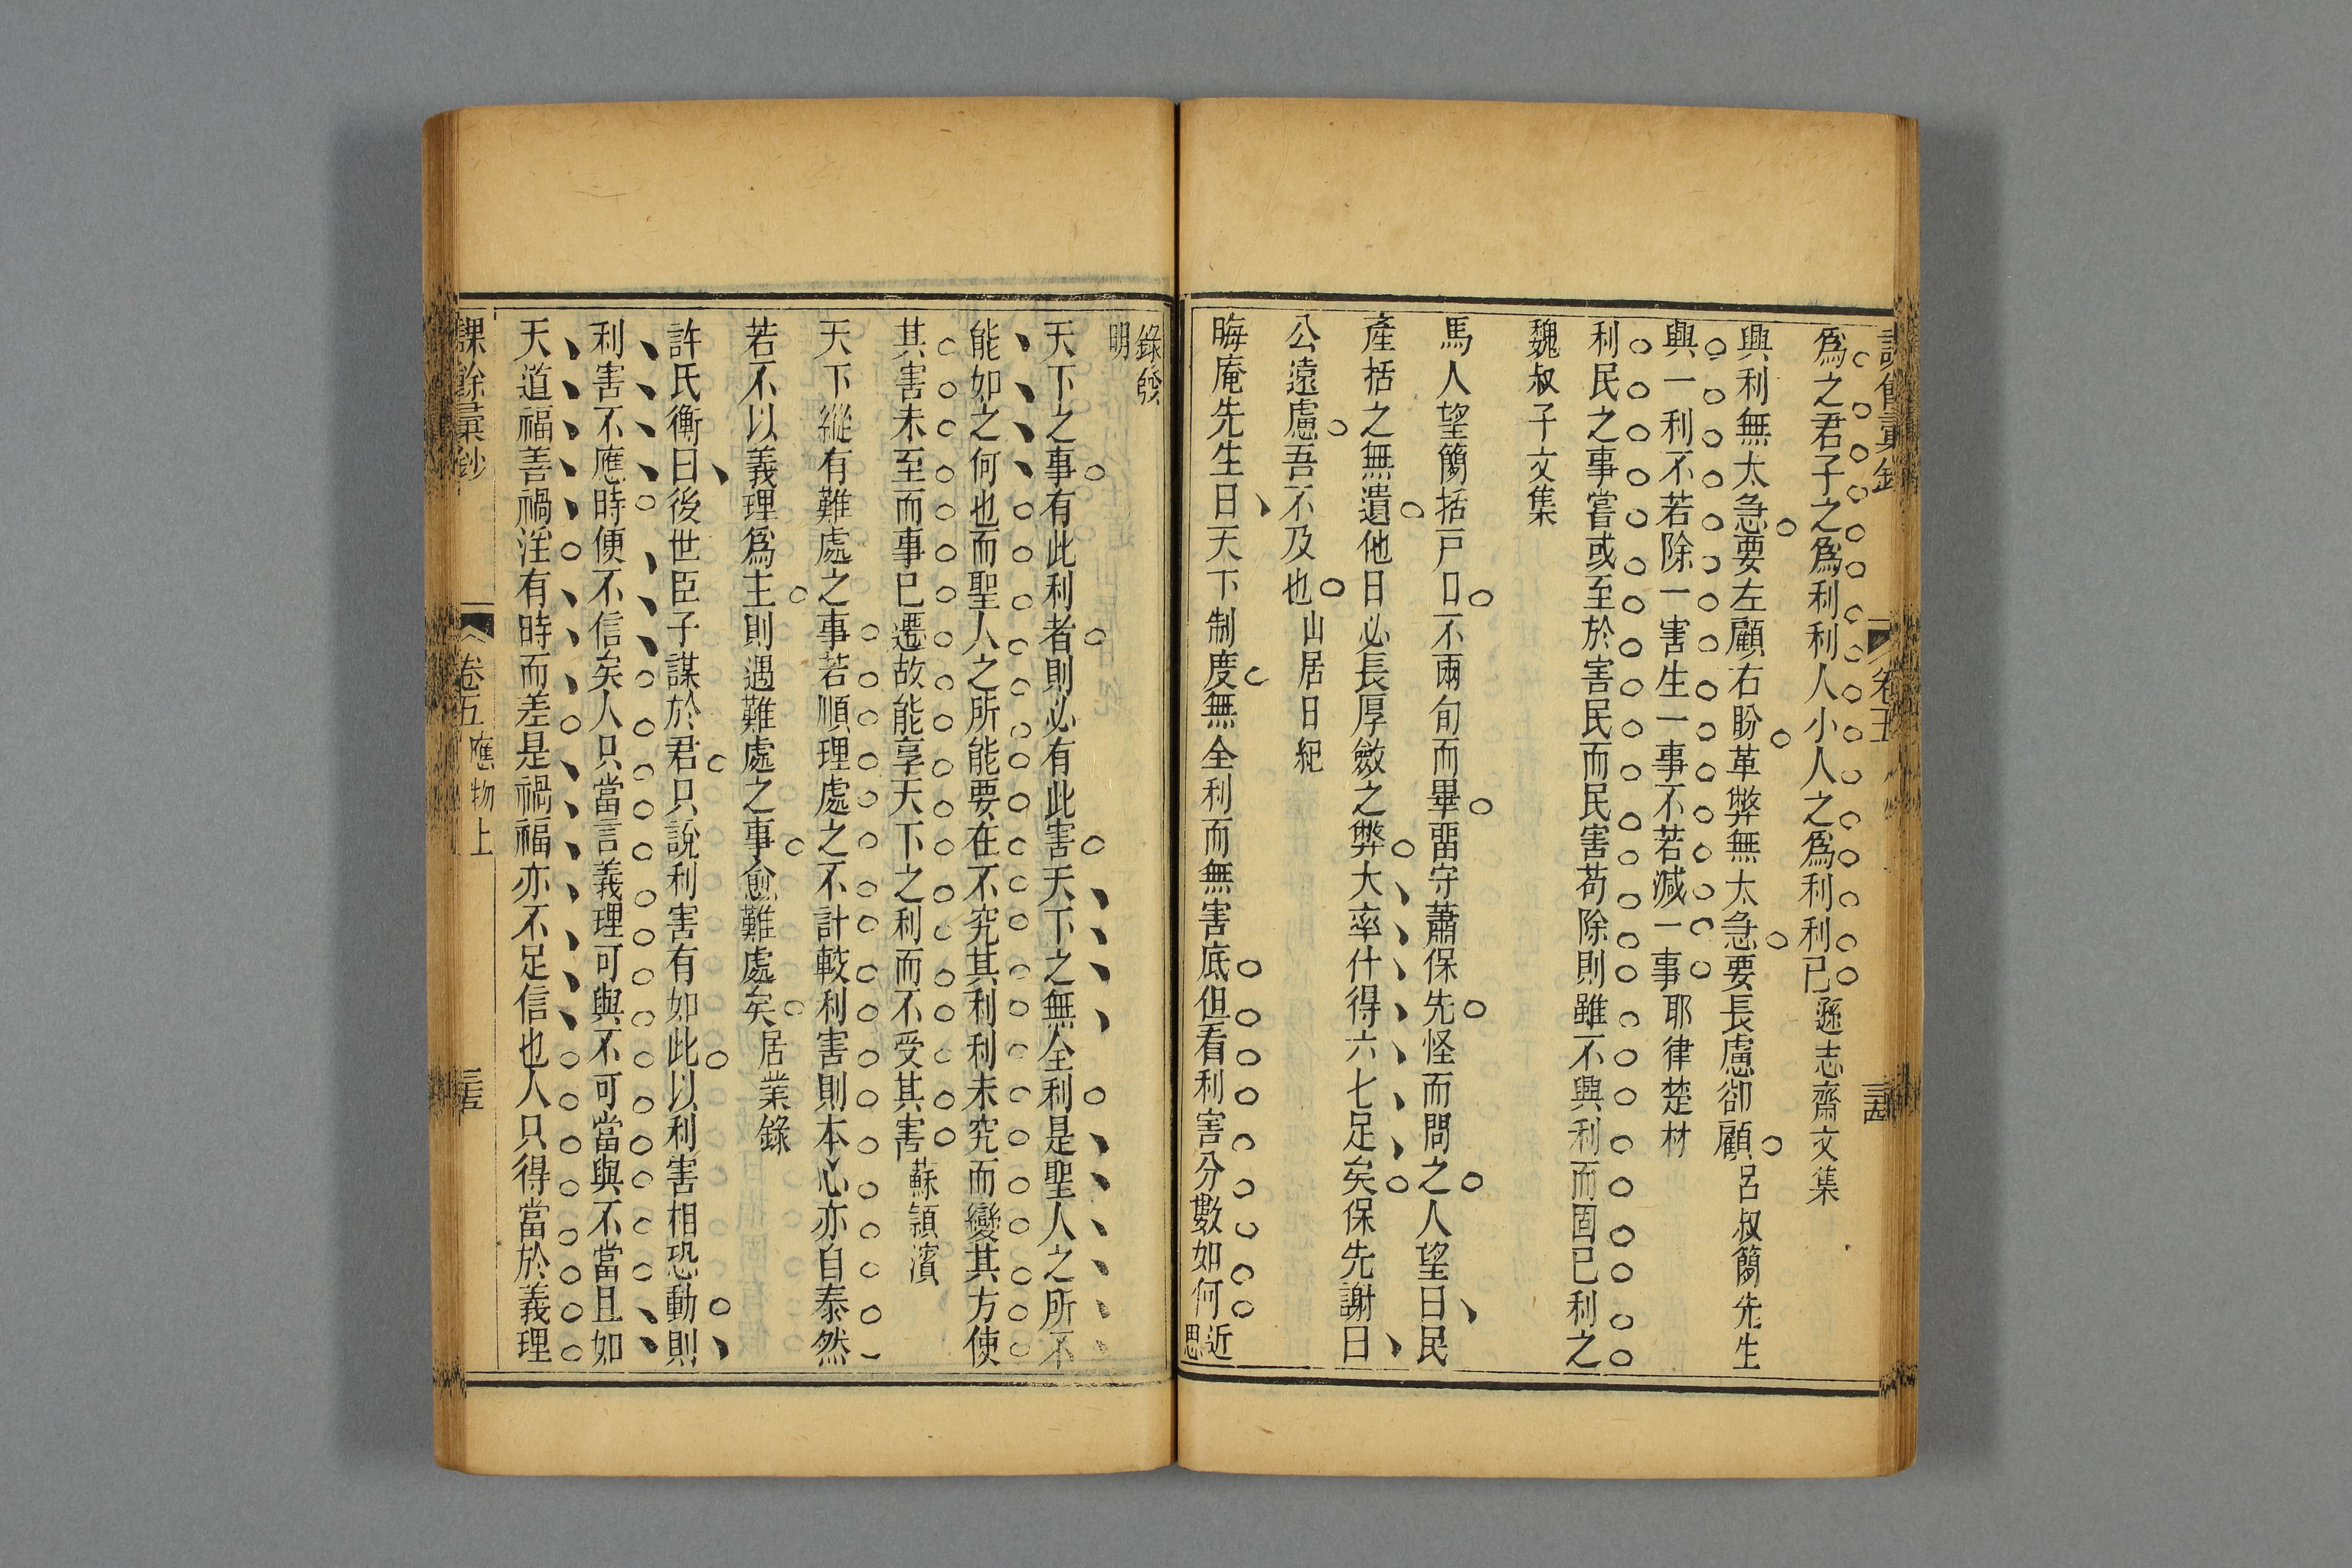 爲之君子之爲利利人小人之爲利利已遜志齋文集
興利無太急要左顧右盼革弊無太急要長慮卻顧呂叔簡先生
興一利不若除一害生一事不若減一事耶律楚材
利民之事嘗或至於害民而民害苟除則雖不興利而固已利之
魏叔子文集
馬人望簡括戸口不兩旬而畢畱守蕭保先怪而問之人望曰民
產括之無遺他日必長厚斂之弊大率什得六七足矣保先謝曰
公遠慮吾不及也山居日紀
晦庵先生曰天下制度無全利而無害底但看利害分數如何近思
錄發明
天下之事有此利者則必有此害天下之無全利是聖人之所不
能如之何也而聖人之所能要在不究其利利未究而變其方使
其害未至而事已遷故能享天下之利而不受其害蘇潁濱
天下縱有難處之事若順理處之不計較利害則本心亦自泰然
若不以義理爲主則遇難處之事愈難處矣居業錄
許氏衡曰後世臣子謀於君只說利害有如此以利害相恐動則
利害不應時便不信矣人只當言義理可與不可當與不當且如
天道福善禍淫有時而差是禍福亦不足信也人只得當於義理
課餘彚鈔
卷五
應物上
三五